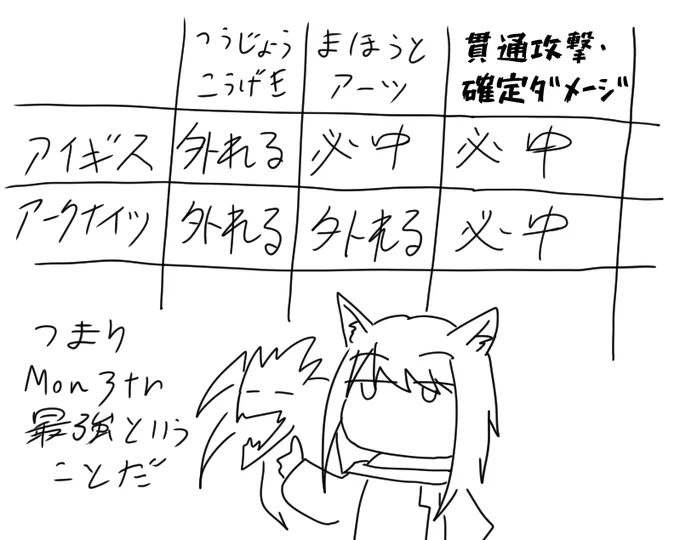 つうじょう
こうげき
まほうと
アーツ
貫通攻撃・
確定ダメージ
アイギス 外れる 必中 必中
アークナイツ 外れる 外れる 必中
つまり
Mon3tr
最強という
ことだ